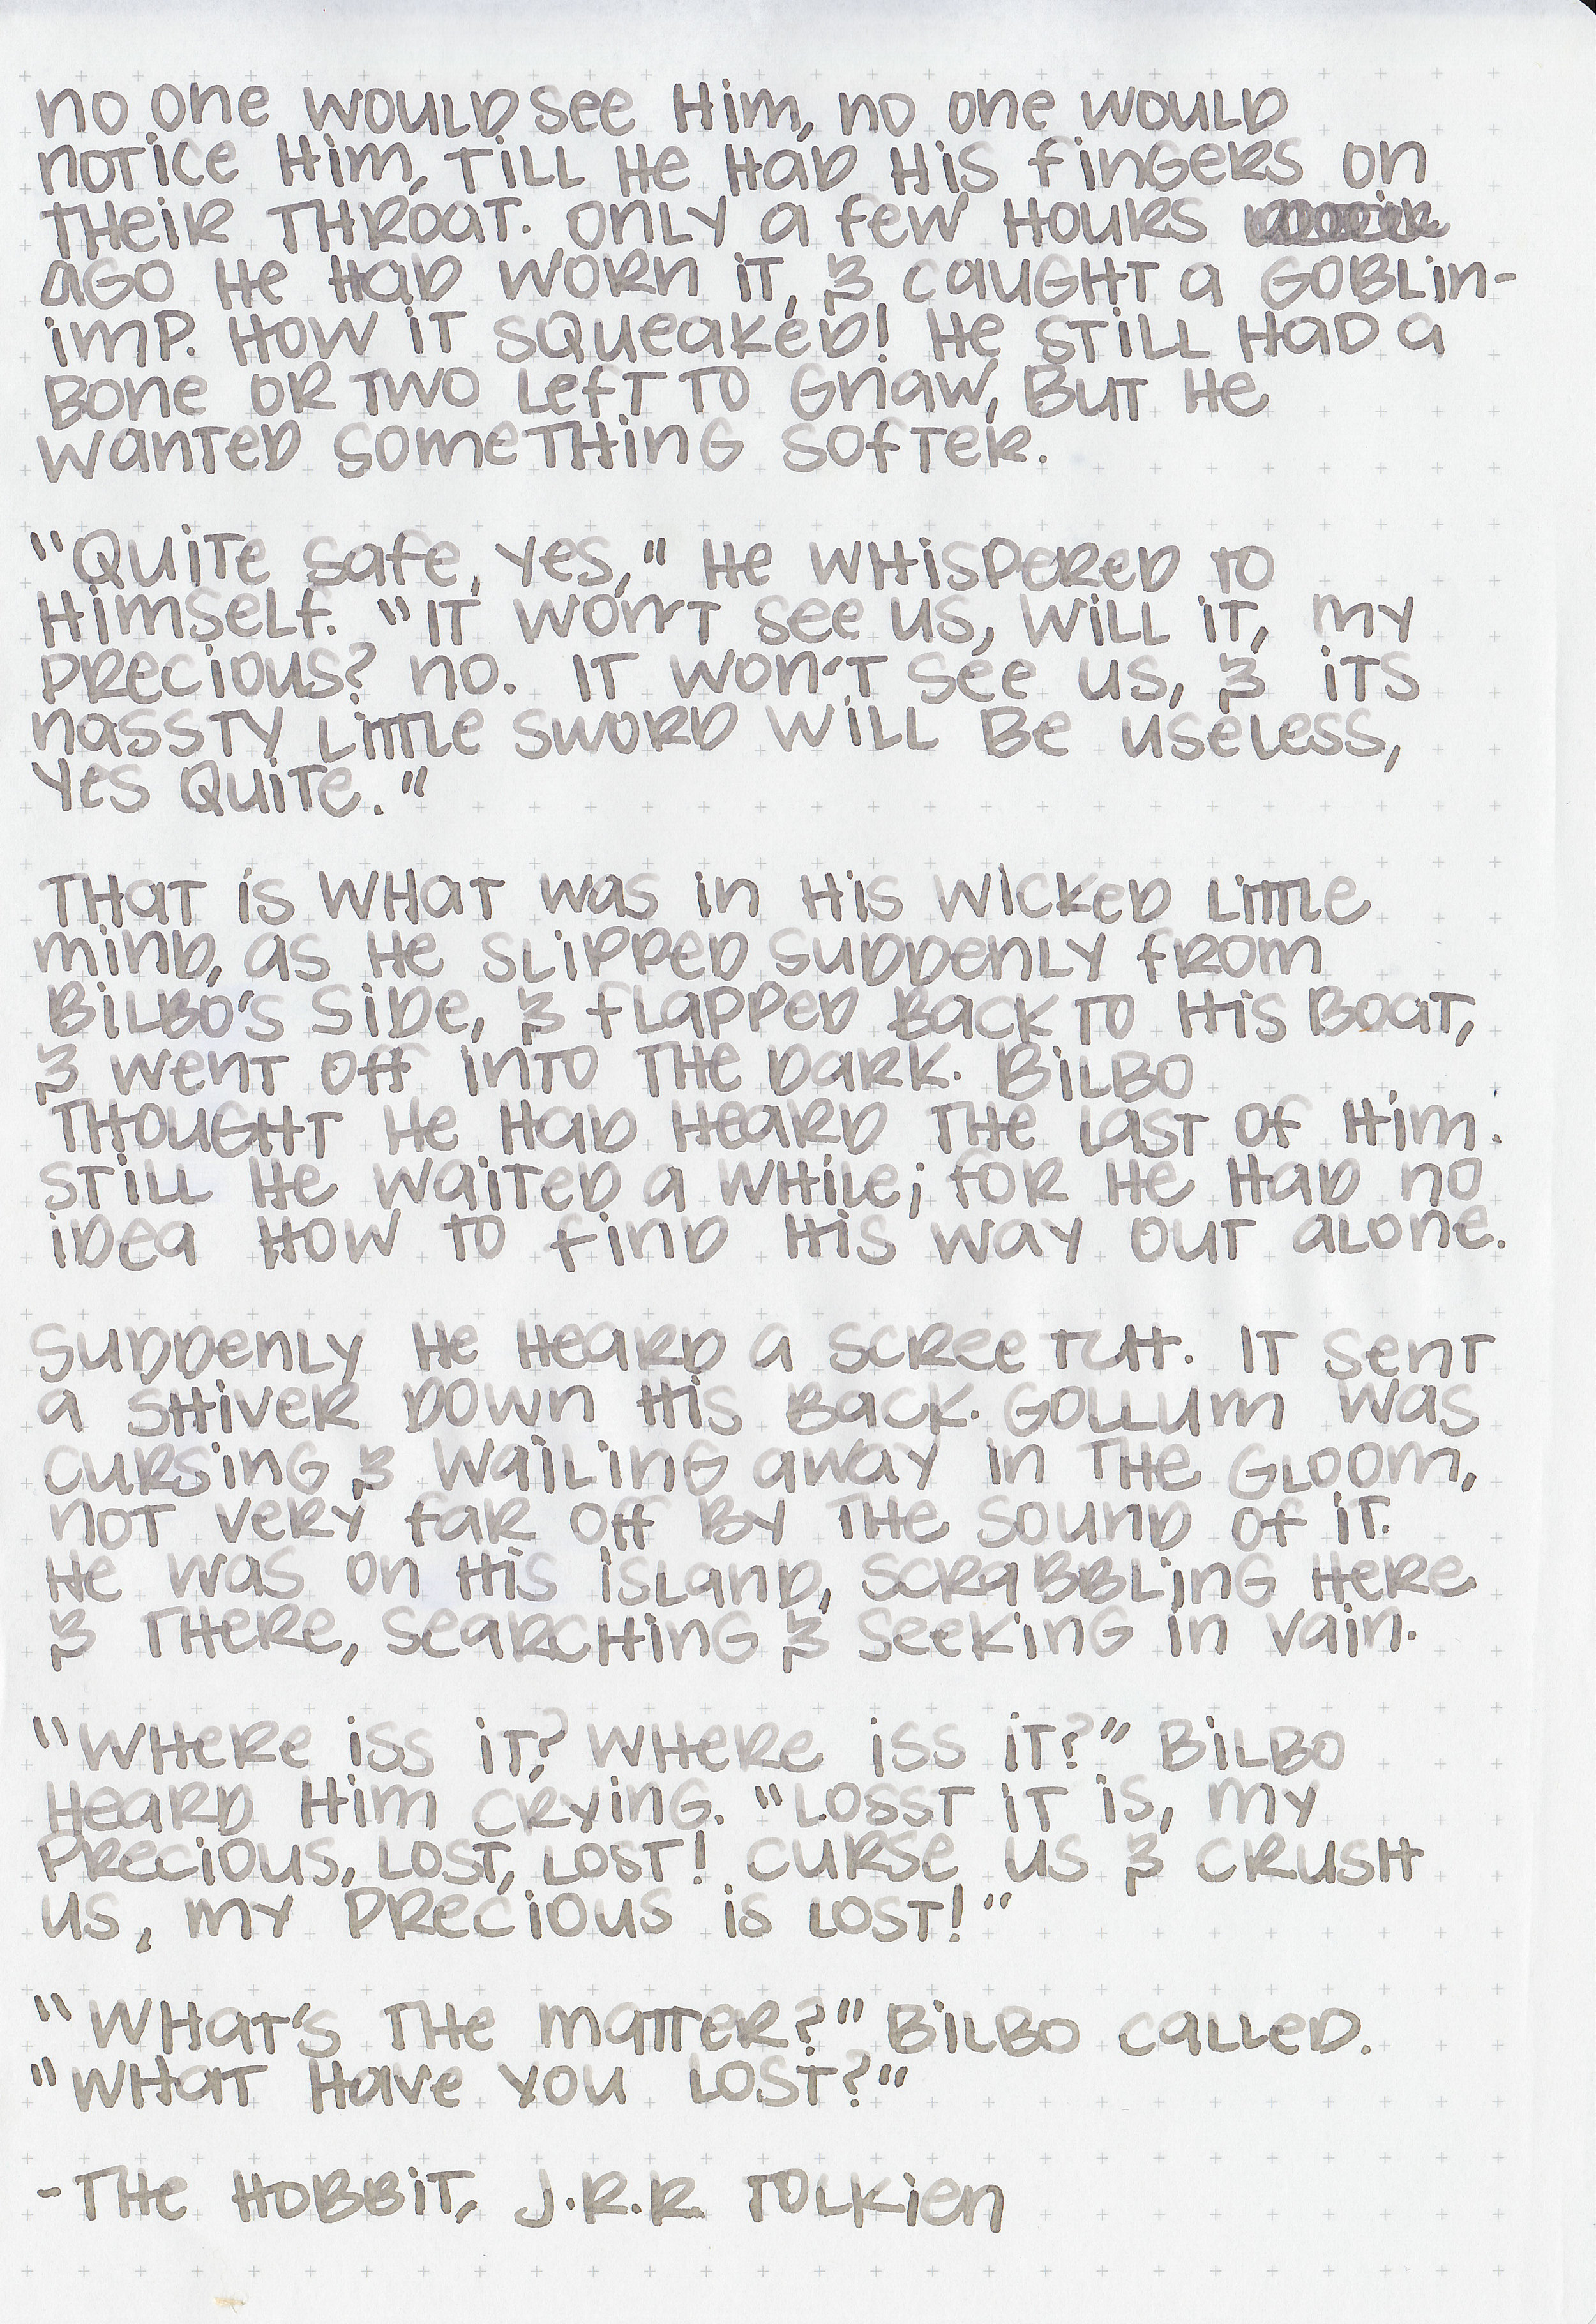 no one would see him, no one would
notice him, till he had his fingers on
their throat. Only a few hours
ago he had worn it, & caught a goblin-
imp. How it squeaked! He still had a
bone or two left to gnaw, but he
wanted something softer.
"Quite safe, yes," he whispered to
himself. "It won't see us, will it, my
precious? No. It won't see us, & its
nassty little sword will be useless,
yes quite."
That is what was in his wicked little
mind, as he slipped suddenly from
Bilbo's side, & flapped back to his boat,
& went off into the dark. Bilbo
thought he had heard the last of him.
Still he waited a while; for he had no
idea how to find his way out alone.
Suddenly he heard a screetch. It sent
a shiver down his back. Gollum was
cursing & wailing away in the gloom,
not very far off by the sound of it.
He was on his island, scrabbling here
& there, searching & seeking in vain.
"Where iss it? Where iss it?" Bilbo
heard him crying. "Losst it is, my
precious, lost, lost! Curse us & crush
us, my precious is lost!"
"What's the matter?" Bilbo called.
"What have you lost?"
-The Hobbit, J.R.R. Tolkien